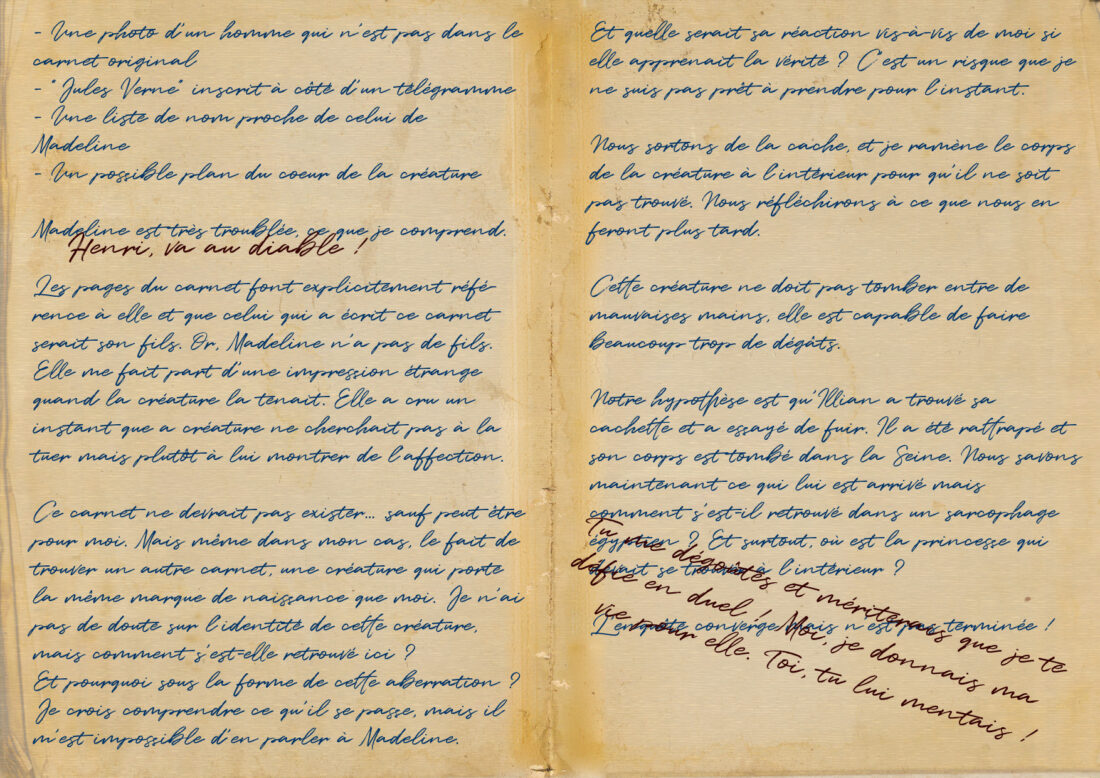 - Une photo d'un homme qui n'est pas dans le
carnet original
- "Jules Verne" inscrit à côté d'un télégramme
- Une liste de nom proche de celui de
Madeline
- Un possible plan du coeur de la créature
Madeline est très troublée, ce que je comprend.
Henri, va au diable !
Les pages du carnet font explicitement réfé-
rence à elle et que celui qui a écrit ce carnet
serait son fils. Or, Madeline n'a pas de fils.
Elle me fait part d'une impression étrange
quand la créature la tenait. Elle a cru un
instant que a créature ne cherchait pas à la
tuer mais plutôt à lui montrer de l'affection.
Ce carnet ne devrait pas exister... sauf peut être
pour moi. Mais même dans mon cas, le fait de
trouver un autre carnet, une créature qui porte
la même marque de naissance que moi. Je n'ai
pas de doute sur l'identité de cette créature,
mais comment s'est-elle retrouvé ici ?
Et pourquoi sous la forme de cette aberration ?
Je crois comprendre ce qu'il se passe, mais il
m'est impossible d'en parler à Madeline.
Et quelle serait sa réaction vis-à-vis de moi si
elle apprenait la vérité ? C'est un risque que je
ne suis pas prêt à prendre pour l'instant.
Nous sortons de la cache, et je ramène le corps
de la créature à l'intérieur pour qu'il ne soit
pas trouvé. Nous réfléchirons à ce que nous en
feront plus tard.
Cette créature ne doit pas tomber entre de
mauvaises mains, elle est capable de faire
beaucoup trop de dégâts.
Notre hypothèse est qu'Illian a trouvé sa
cachette et a essayé de fuir. Il a été rattrapé et
son corps est tombé dans la Seine. Nous savons
maintenant ce qui lui est arrivé mais
comment s'est-il retrouvé dans un sarcophage
égyptien ? Et surtout, où est la princesse qui
devait se trouver à l'intérieur ?
L'enquête converge mais n'est pas terminée !
Tu me dégoûtes et mériterais que je te
défie en duel ! Moi, je donnais ma
vie pour elle. Toi, tu lui mentais !